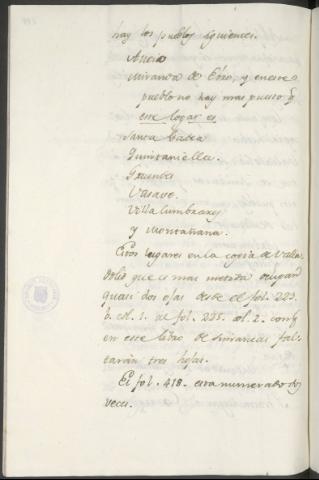 hay los pueblos siguientes.
Miranda de Ebro, y en este
pueblo no hay mas puesto q
este lugar es
Santa Gadea
Quintanilla.
Villalumbrares
y Montañana.
Estos lugares en la copia de Valla
dolid que es mas metida ocupan
quasi dos ojas desde el fol. 233.
b. col. 1. al fol. 235. col. 2. conq
en este libro de Simancas fal-
tarán tres hojas.
El fol. 418. esta numerado dos
veces.